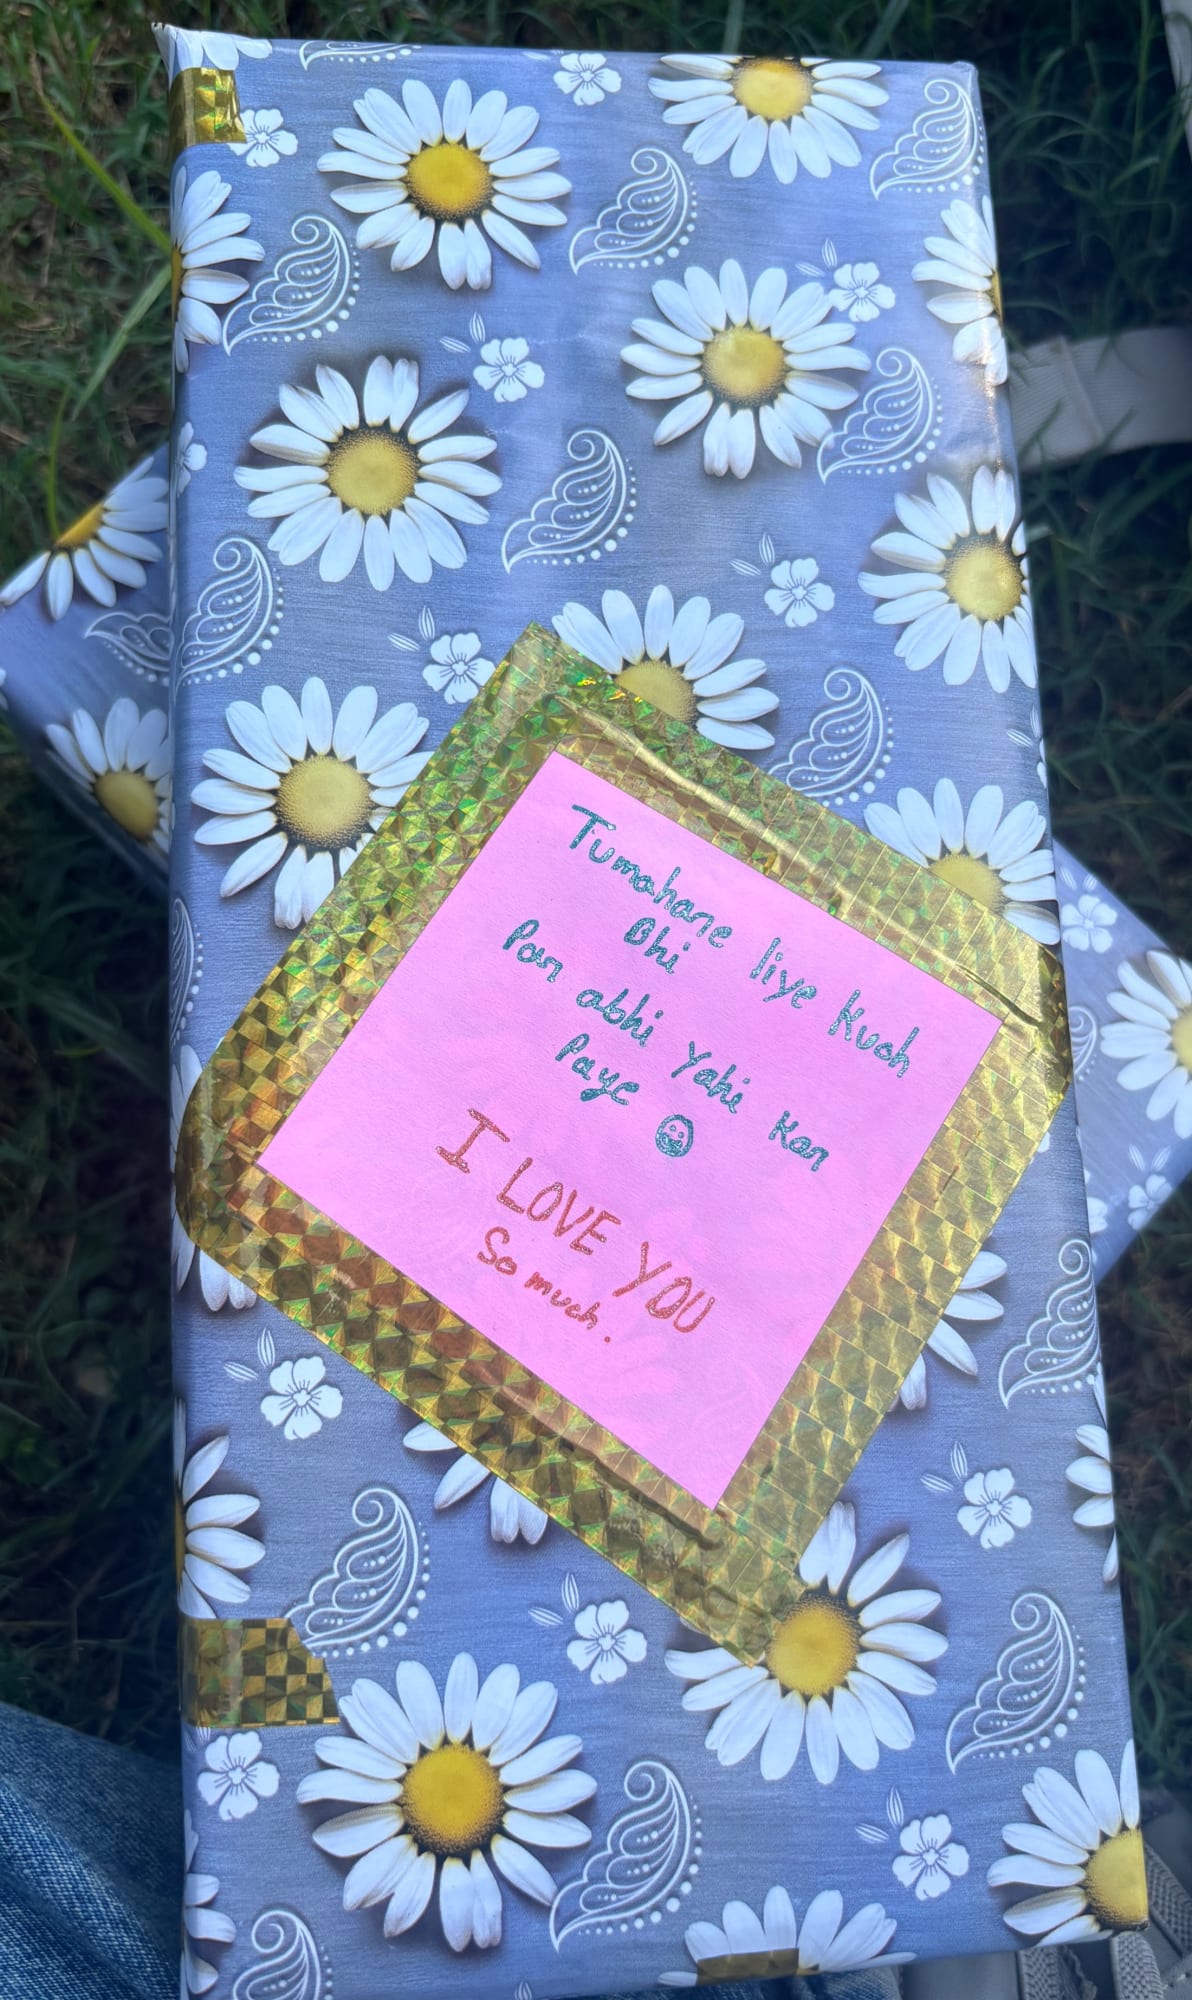 Tumahare liye kuch
Bhi
Par abhi Yahi kar
Paye
I LOVE YOU
So much.